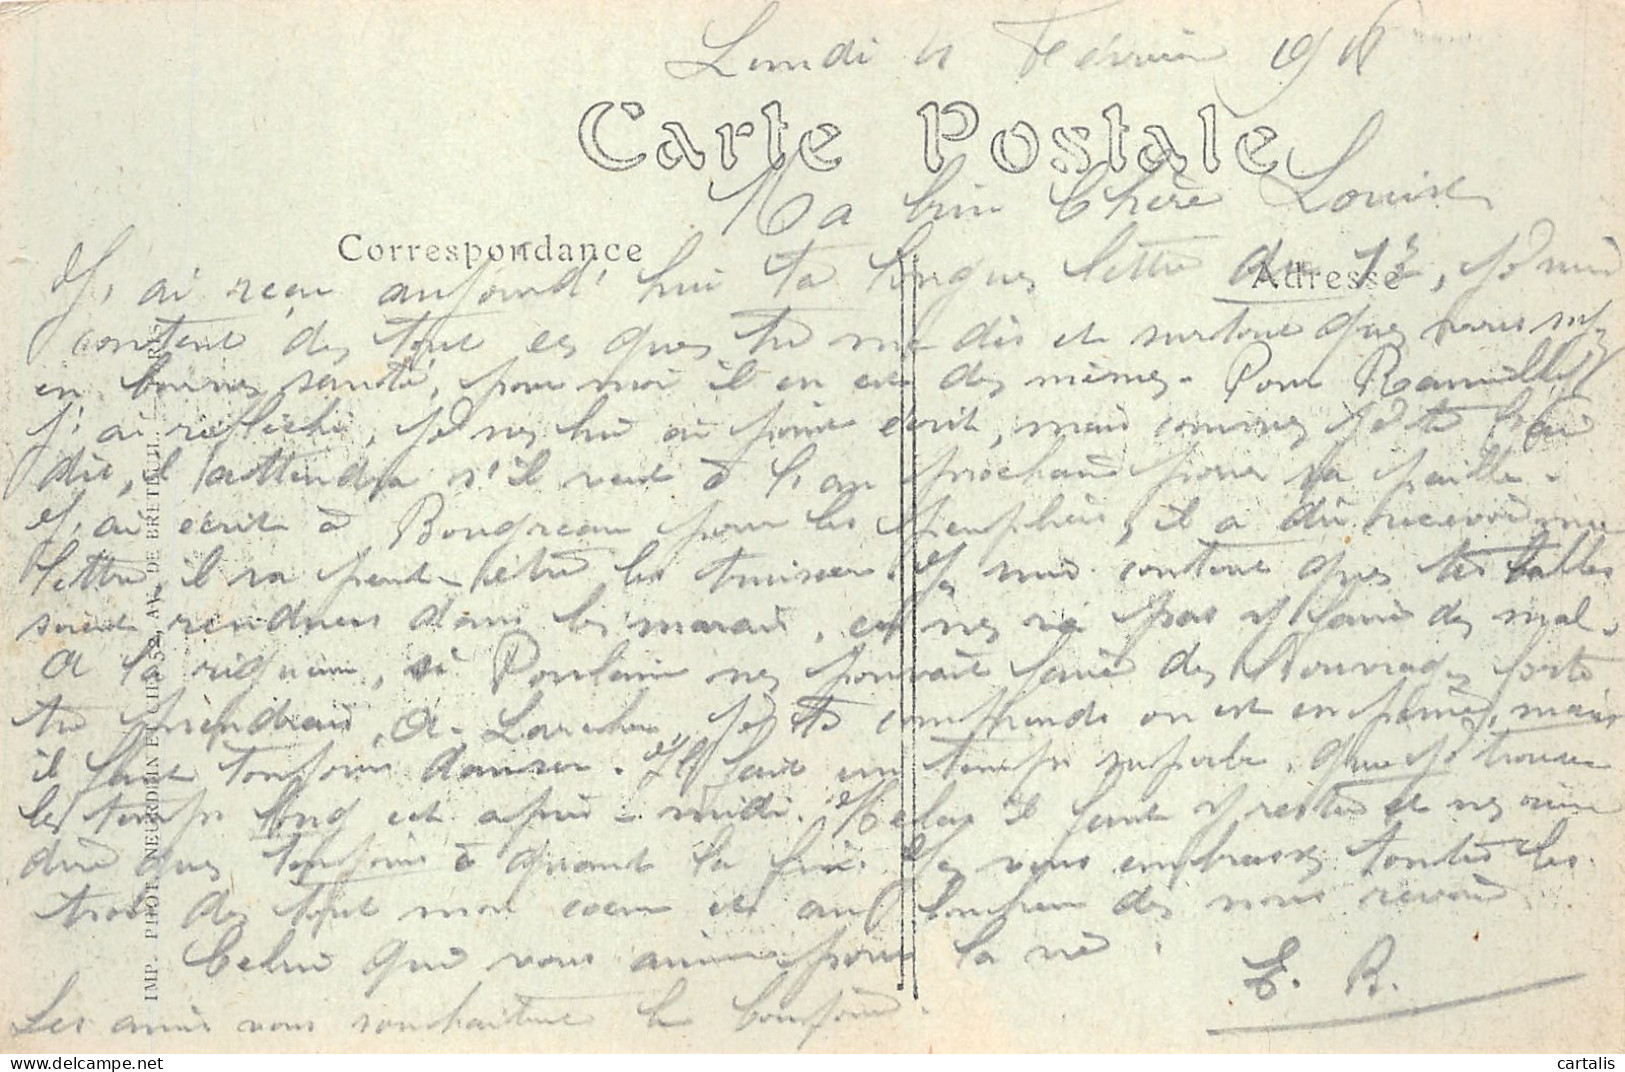 Lundi 4 Février 191
Carte Postale
Ma bien Chère Louise
Correspondance
Adresse
J'ai reçu aujourd'hui ta longue lettre du 1er, je suis
content de tout ce que tu me dis et surtout que vous soyez
en bonne santé, pour moi il en est de même. Pour
j'ai réfléchi, je ne lui ai point écrit, mais comme je te l'ai
dit, il attendra s'il veut à l'an prochain pour sa paille.
J'ai écrit à Bougreau pour les peupliers, il a dû recevoir ma
lettre, il va peut-être les. Je suis content que tes
soient rendues dans les marais, ça ne va pas y faire de mal.
A la rigueur, si Poulain ne pouvait faire de
tu prendrais A. Larcher, je te comprends on est en peine, mais
il faut toujours danser. Il fait un temps superbe, que je trouve
le temps long cet après-midi. Hélas il faut y rester et ne rien
dire que toujours à quand la fin. Je vous embrasse toutes les
trois de tout mon coeur et au bonheur de nous revoir
Celui qui vous aime pour la vie.
E. R.
Les amis vous souhaitent le bonjour.
IMP. PHOT. NEURDEIN ET CIE. 52, AV. DE BRETEUIL. PARIS
cartalis